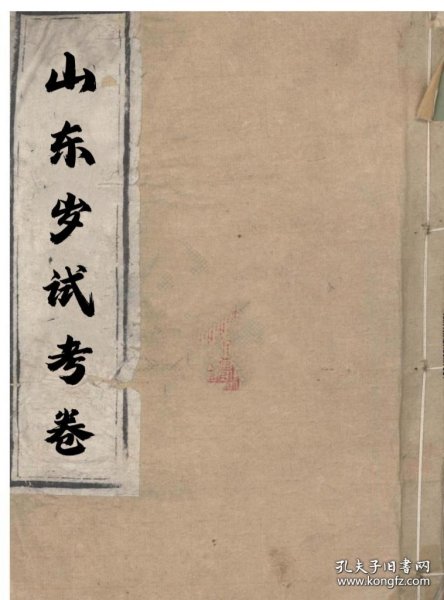 山东岁试考卷
孔夫子旧书网
www.kongfz.com